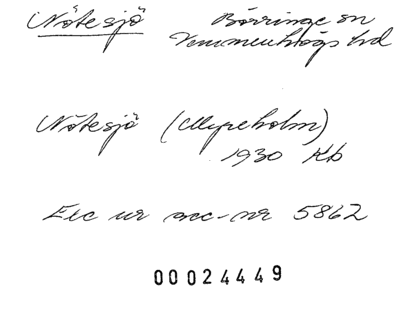 Nötesjö Börringe sn
Vemmenhögs hd
Nötesjö (Myreholm)
1930 Kb
Exc ur acc-nr 5862
00024449